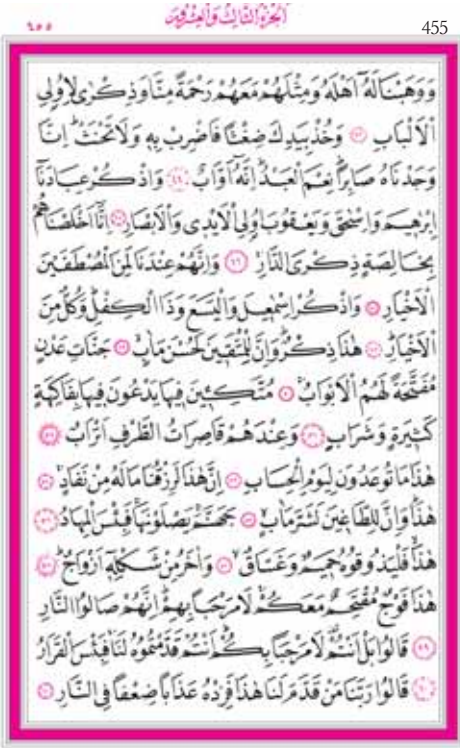 ٤٥٥ اَلْجُزْءُ الثَّالِثُ وَالْعِشْرُونَ 455
وَوَهَبْنَا لَهُٓ اَهْلَهُ وَمِثْلَهُمْ مَعَهُمْ رَحْمَةً مِنَّا وَذِكْرٰى لِاُو۬لِي
الْاَلْبَابِ ﴿٤٣﴾ وَخُذْ بِيَدِكَ ضِغْثًا فَاضْرِبْ بِهِ وَلَا تَحْنَثْ اِنَّا
وَجَدْنَاهُ صَابِرًا نِعْمَ الْعَبْدُ اِنَّهُٓ اَوَّابٌ ﴿٤٤﴾ وَاذْكُرْ عِبَادَنَٓا
اِبْرٰهِيمَ وَاِسْحٰقَ وَيَعْقُوبَ اُو۬لِي الْاَيْدِي وَالْاَبْصَارِ ﴿٤٥﴾ اِنَّٓا اَخْلَصْنَاهُمْ
بِخَالِصَةٍ ذِكْرَى الدَّارِ ﴿٤٦﴾ وَاِنَّهُمْ عِنْدَنَا لَمِنَ الْمُصْطَفَيْنَ
الْاَخْيَارِ ﴿٤٧﴾ وَاذْكُرْ اِسْمٰعِيلَ وَالْيَسَعَ وَذَا الْكِفْلِ وَكُلٌّ مِنَ
الْاَخْيَارِ ﴿٤٨﴾ هٰذَا ذِكْرٌ وَاِنَّ لِلْمُتَّقِينَ لَحُسْنَ مَاٰبٍ ﴿٤٩﴾ جَنَّاتِ عَدْنٍ
مُفَتَّحَةً لَهُمُ الْاَبْوَابُ ﴿٥٠﴾ مُتَّكِـِٔينَ فِيهَا يَدْعُونَ فِيهَا بِفَاكِهَةٍ
كَثِيرَةٍ وَشَرَابٍ ﴿٥١﴾ وَعِنْدَهُمْ قَاصِرَاتُ الطَّرْفِ اَتْرَابٌ ﴿٥٢﴾
هٰذَا مَا تُوعَدُونَ لِيَوْمِ الْحِسَابِ ﴿٥٣﴾ اِنَّ هٰذَا لَرِزْقُنَا مَا لَهُ مِنْ نَفَادٍ ﴿٥٤﴾
هٰذَا وَاِنَّ لِلطَّاغِينَ لَشَرَّ مَاٰبٍ ﴿٥٥﴾ جَهَنَّمَ يَصْلَوْنَهَا فَبِئْسَ الْمِهَادُ ﴿٥٦﴾
هٰذَا فَلْيَذُوقُوهُ حَمِيمٌ وَغَسَّاقٌ ﴿٥٧﴾ وَاٰخَرُ مِنْ شَكْلِهِٓ اَزْوَاجٌ ﴿٥٨﴾
هٰذَا فَوْجٌ مُقْتَحِمٌ مَعَكُمْ لَا مَرْحَبًا بِهِمْ اِنَّهُمْ صَالُوا النَّارِ
﴿٥٩﴾ قَالُوا بَلْ اَنْتُمْ لَا مَرْحَبًا بِكُمْ اَنْتُمْ قَدَّمْتُمُوهُ لَنَا فَبِئْسَ الْقَرَارُ
﴿٦٠﴾ قَالُوا رَبَّنَا مَنْ قَدَّمَ لَنَا هٰذَا فَزِدْهُ عَذَابًا ضِعْفًا فِي النَّارِ ﴿٦١﴾